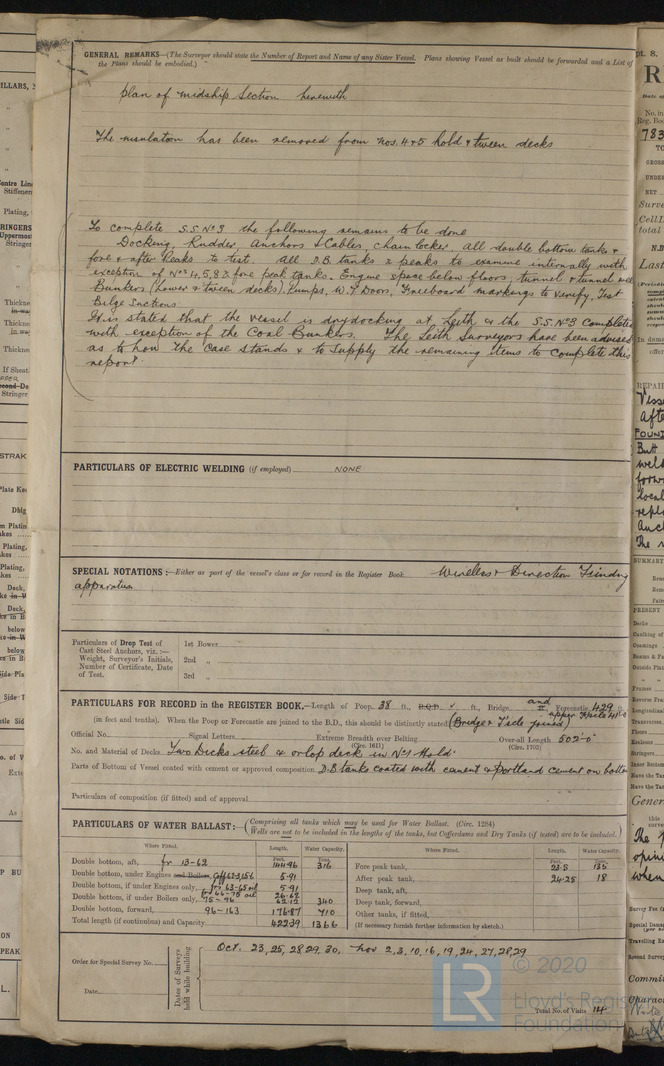 GENERAL REMARKS—(The Surveyor should state the Number of Report and Name of any Sister Vessel. Plans showing Vessel as built should be forwarded and a List of
the Plans should be embodied.)
plan of midship Section herewith
The insulation has been removed from Nos. 4 & 5 hold & tween decks
To complete S.S. No 3 the following remains to be done
Docking, Rudder, Anchors & Cables, chain locker, all double bottom tanks &
fore & after Peaks to test. All D.B. tanks & peaks to examine internally with
exception of Nos 4, 5, 8 & fore peak tanks. Engine space below floors, tunnel & tunnel well
Bunkers (Lower & tween decks), Pumps, W.T. Doors, Freeboard markings to verify, Test
Bilge Suctions
It is stated that the vessel is drydocking at Leith & the S.S. No 3 completed
with exception of the Coal Bunkers. The Leith Surveyors have been advised
as to how the case stands & to supply the remaining items to complete this
report.
PARTICULARS OF ELECTRIC WELDING (if employed) NONE
SPECIAL NOTATIONS:—Either as part of the vessel's class or for record in the Register Book. Wireless & Direction Finding
apparatus
Particulars of Drop Test of
Cast Steel Anchors, viz.:—
Weight, Surveyor's Initials,
Number of Certificate, Date
of Test.
1st Bower
2nd „
3rd „
PARTICULARS FOR RECORD in the REGISTER BOOK.—Length of Poop 38 ft., ft., Bridge and Forecastle 429 ft.
(in feet and tenths). When the Poop or Forecastle are joined to the B.D., this should be distinctly stated (Bridge & F'cle joined)
Official No. Signal Letters Extreme Breadth over Belting Over-all Length 502'-0"
(Circ. 1611) (Circ. 1703)
No. and Material of Decks Two Decks steel & orlop deck in No 1 Hold.
Parts of Bottom of Vessel coated with cement or approved composition D.B tanks coated with cement & Portland cement on bottom
Particulars of composition (if fitted) and of approval
PARTICULARS OF WATER BALLAST:— (Comprising all tanks which may be used for Water Ballast. (Circ. 1284)
Wells are not to be included in the lengths of the tanks, but Cofferdams and Dry Tanks (if tested) are to be included.)
Where Fitted. Length. Water Capacity. Where Fitted. Length. Water Capacity.
Feet. Tons. Feet. Tons.
Double bottom, aft, fr 13-62 144.96 316
Double bottom, under Engines and Boilers, 5.91
Double bottom, if under Engines only, fr 63-65 oil 5.91
fr 66-75 oil 26.62
Double bottom, if under Boilers only, 75-96 62.12 340
Double bottom, forward, 96-163 176.87 710
Total length (if continuous) and Capacity 422.39 1366
Fore peak tank, 23.5 135
After peak tank, 24.25 18
Deep tank, aft,
Deep tank, forward,
Other tanks, if fitted,
(If necessary furnish further information by sketch.)
Order for Special Survey No.
Date
Dates of Surveys
held while building
Oct. 23, 25, 28, 29, 30, Nov 2, 3, 10, 16, 19, 24, 27, 28, 29
Total No. of Visits 14
LR
© 2020
Lloyd's Register
Foundation